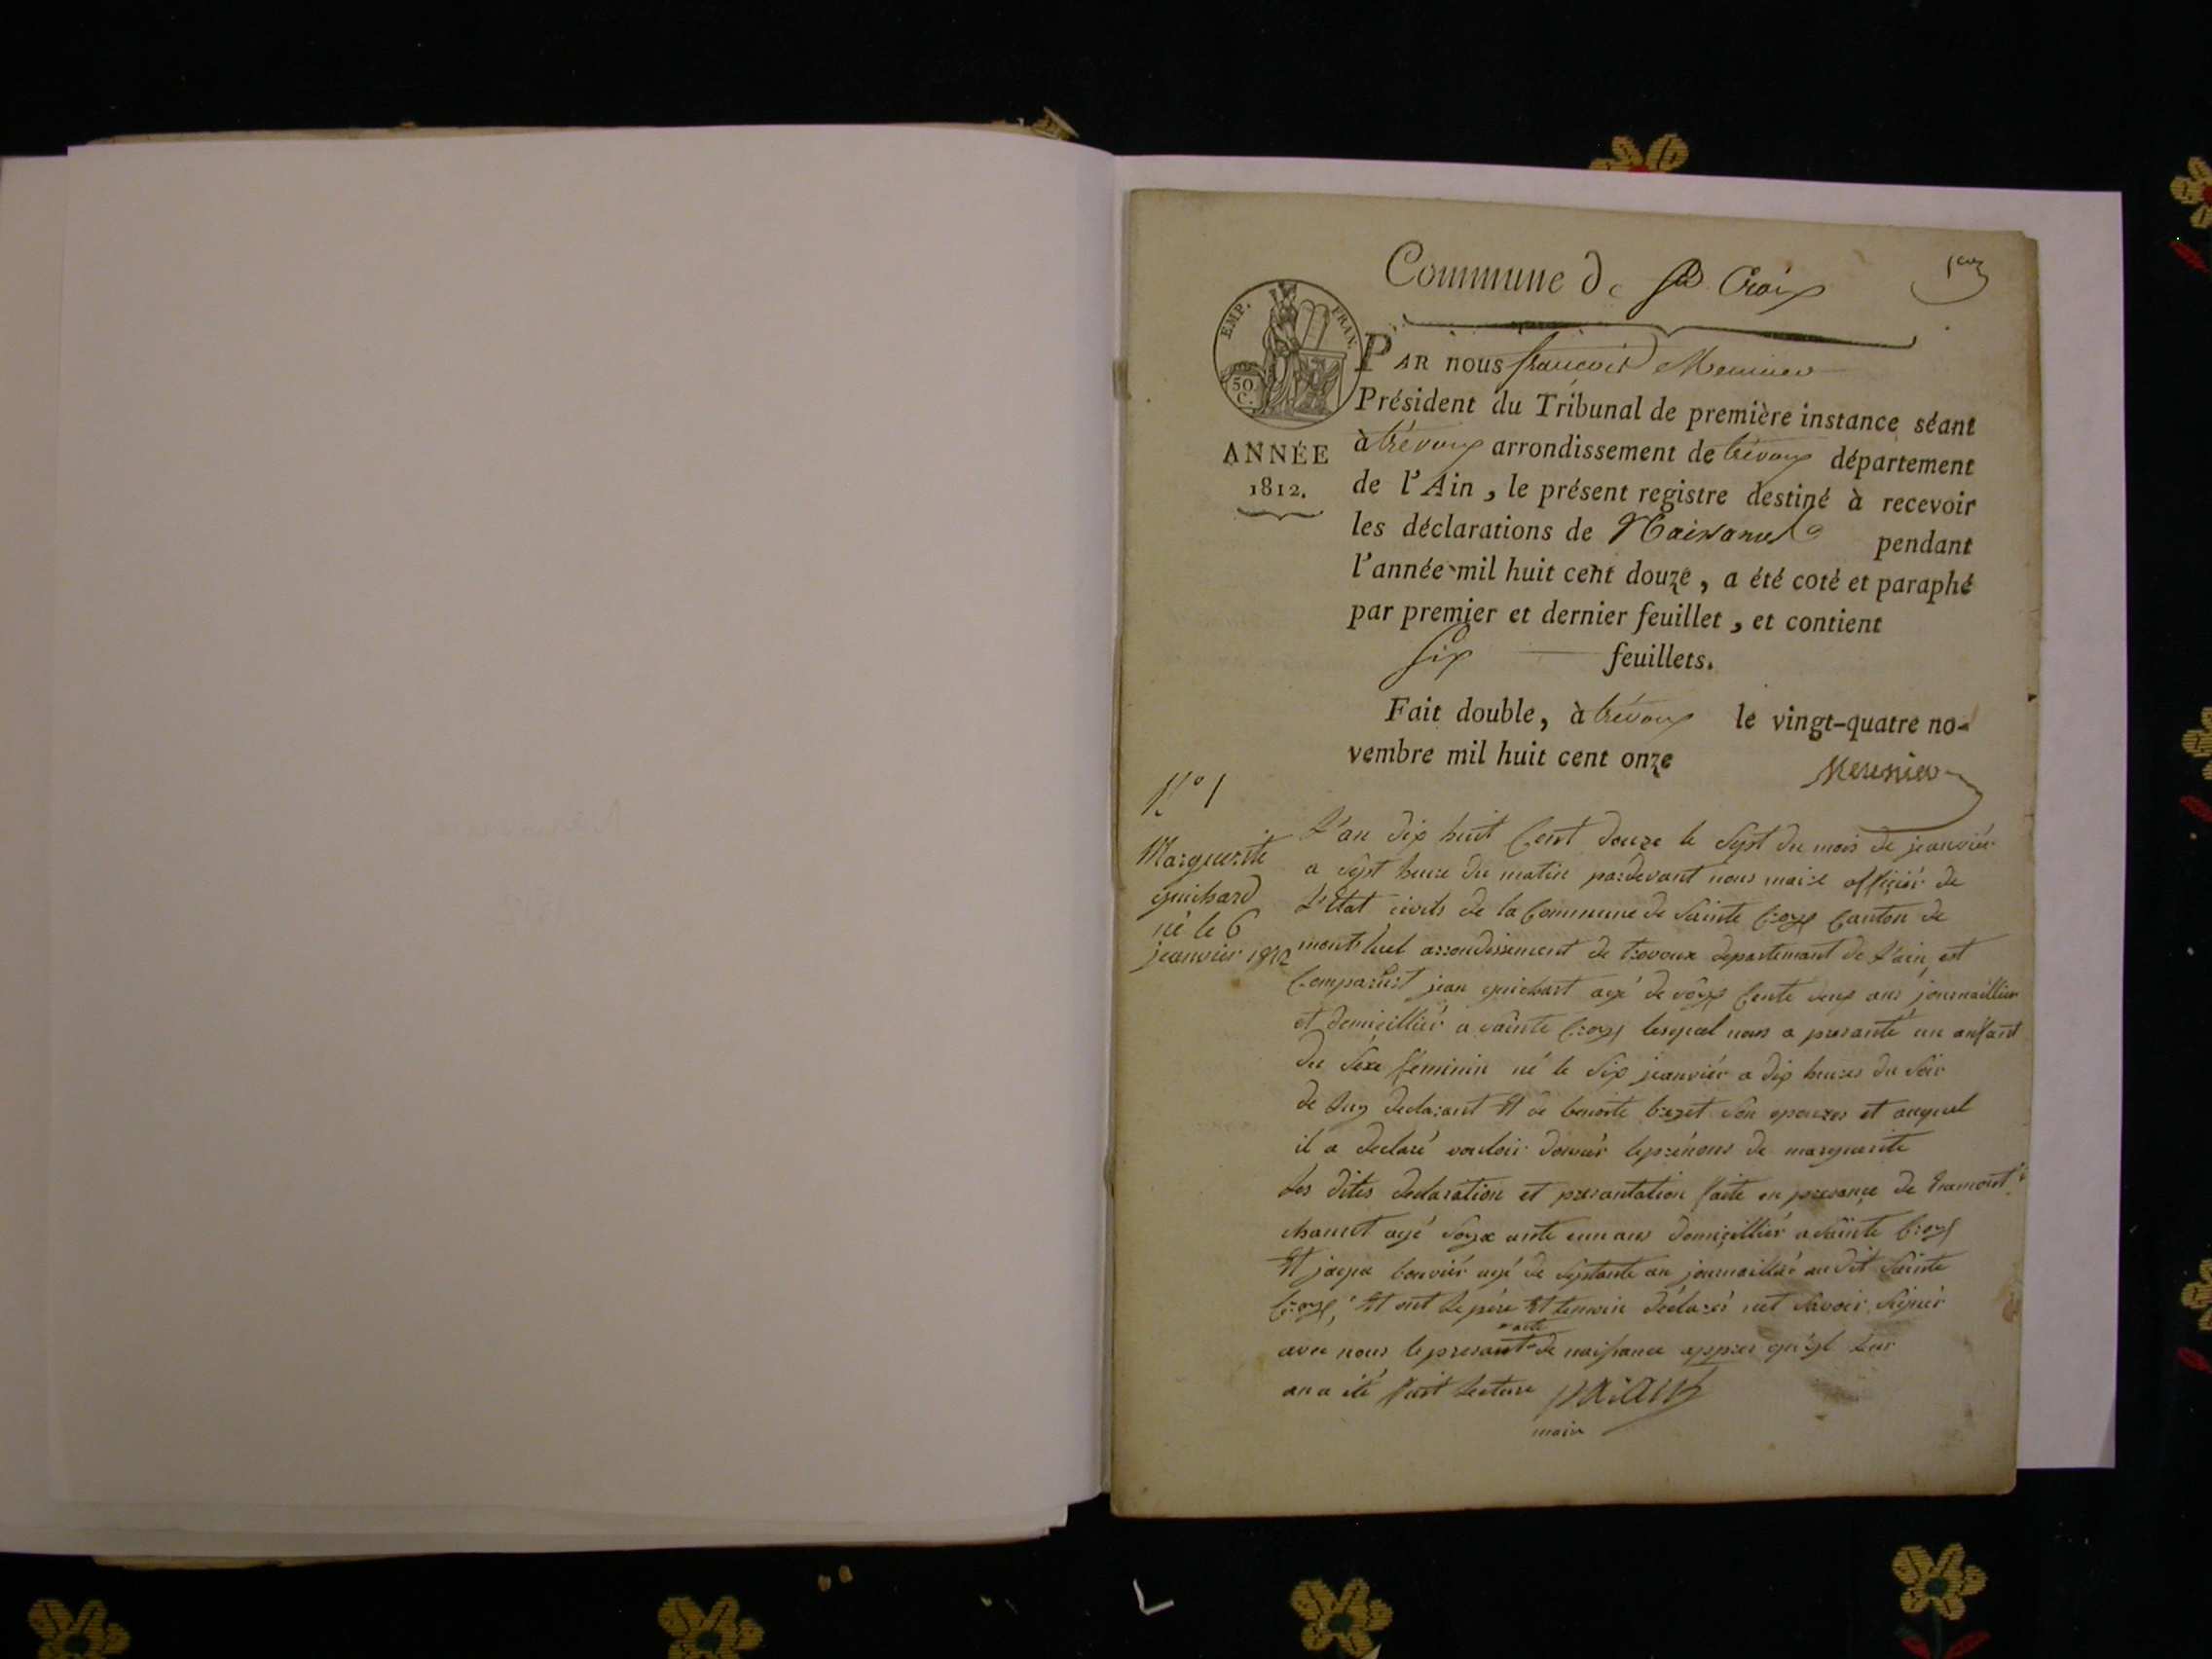 Commune de Ste Croix
1er
EMP. FRAN.
50
C.
ANNÉE
1812.
PAR nous françois Meunier
Président du Tribunal de première instance séant
à trévoux arrondissement de trévoux département
de l'Ain, le présent registre destiné à recevoir
les déclarations de Naissances pendant
l'année mil huit cent douze, a été coté et paraphé
par premier et dernier feuillet, et contient
six feuillets.
Fait double, à trévoux le vingt-quatre no-
vembre mil huit cent onze
Meunier
N° 1
Marguerite
guichard
né le 6
jeanvier 1812
L'an dix huit Cent douze le Sept du mois de jeanviér
a Sept heure du matin pardevant nous maire officiér de
L'Etat civils de la Commune de Sainte Croyx Canton de
montluel arrondissement de trevoux departemant de L'ain, est
Comparust jean guichart agé de ans journaillier
et domicilliér a Sainte Croyx lesquel nous a presanté un anfant
du Sexe féminin né le Six jeanviér a dix heures du Soir
de Luy declarant Et de benoite Son epouzes et auquel
il a declaré vouloir donnér leprénoms de marguerite
Les dites declaration et presantation faite en presance de
agé ans domicilliér a Sainte Croyx
Et jaque bouviér agé de Septante an journaillér au dit Sainte
Croyx, Et ont Le père Et temoin déclaré net Savoir Signér
avec nous le presant acte de naissance appres qu'yl Leur
an a été fait Lecture
maire